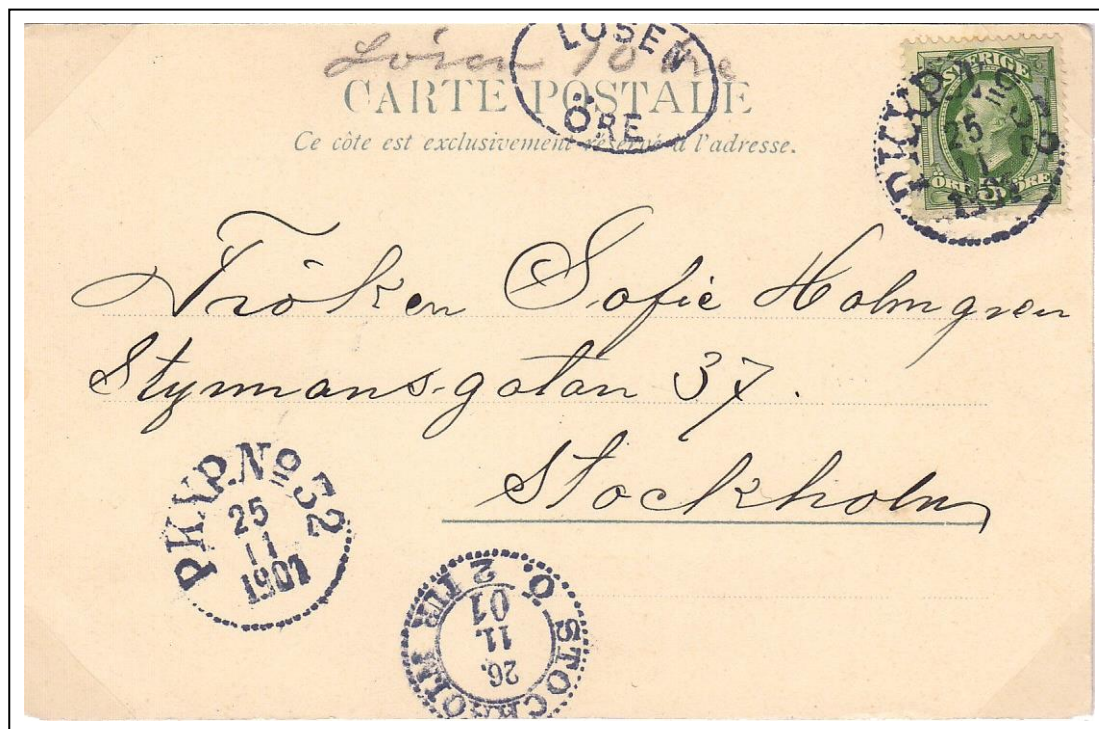 Lösen 10 öre
LÖSEN
ÖRE
CARTE POSTALE
Ce côte est exclusivement réservé à l'adresse.
SVERIGE
ÖRE 5 ÖRE
PKXP. No 52
25
11
1901
Fröken Sofie Holmgren
Styrmans-gatan 37.
Stockholm
PKXP. No 52
25
11
1901
STOCKHOLM Ö
2 TUR
26.
11.
01